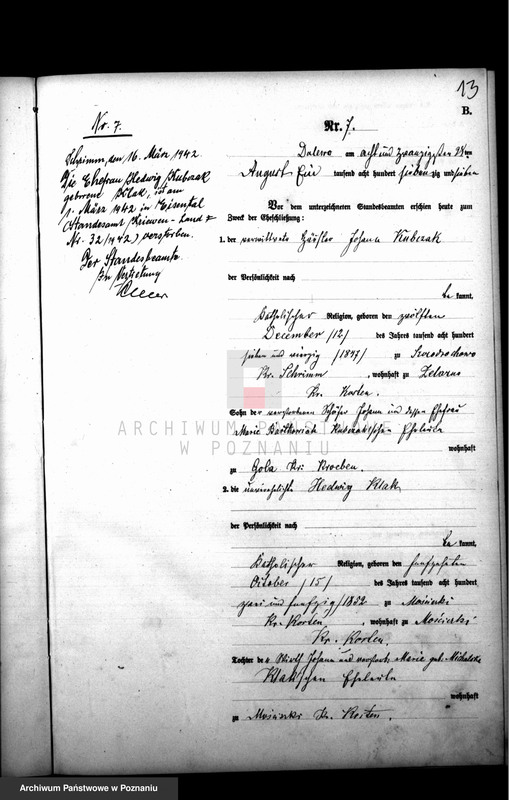 13
B.
Nr. 7.
Nr. 7.
Schrimm, den 16. März 1942.
Die Ehefrau Hedwig Kubczak
geborene Klak, ist am
1. März 1942 in
(Standesamt Kriewen-Land
Nr. 32/1942) verstorben.
Der Standesbeamte
In Vertretung
Dalewo am acht und zwanzigsten
August tausend acht hundert sieben zig und sieben
Vor dem unterzeichneten Standesbeamten erschien heute zum
Zweck der Eheschließung:
1. der verwittwete Häusler Johann Kubczak
der Persönlichkeit nach
be kannt,
katholischer Religion, geboren den zwölften
December /12/ des Jahres tausend acht hundert
sieben und vierzig /1847/ zu
Kr. Schrimm, wohnhaft zu Zelazno
Kr. Kosten.
Sohn der verstorbenen Schäfer Johann und dessen Ehefrau
Marie Kubczakschen Eheleute
wohnhaft
zu Gola Kr. Kroeben.
2. die unverehelichte Hedwig Klak
der Persönlichkeit nach
be kannt,
katholischer Religion, geboren den fünfzehnten
October /15/ des Jahres tausend acht hundert
zwei und fünfzig /1852 zu Mościszki
Kr. Kosten, wohnhaft zu Mościszki
Kr. Kosten
Tochter der Wirth Johann und Marie geb. Michalska
Klakschen Eheleute
wohnhaft
zu Mościszki Kr. Kosten.
ARCHIWUM PAŃSTWOWE
W POZNANIU
Archiwum Państwowe w Poznaniu